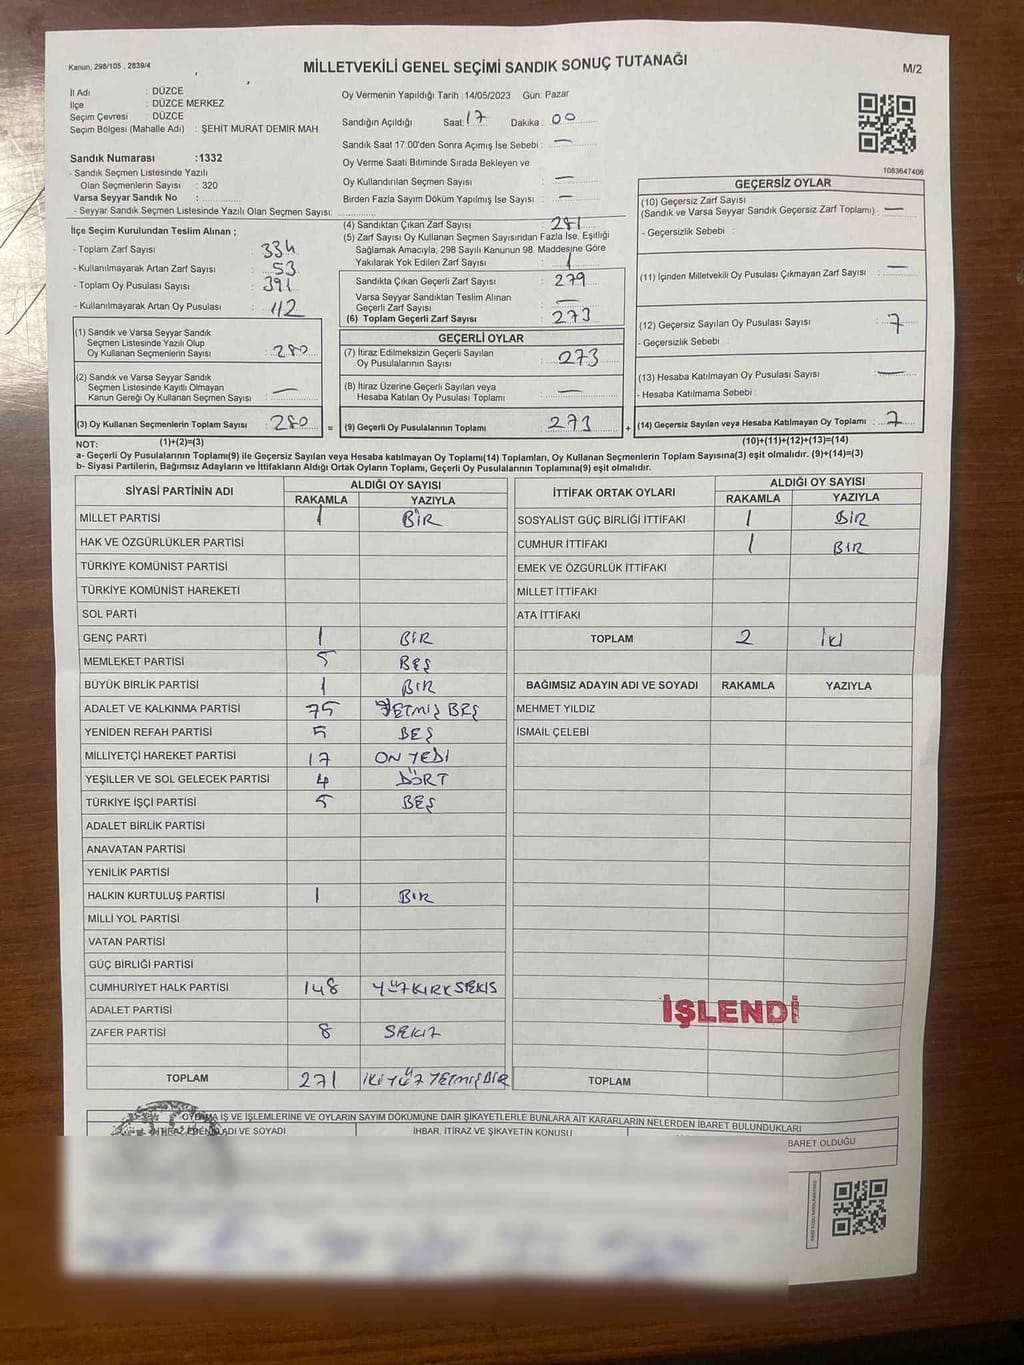 Kanun, 298/105 , 2839/4
MİLLETVEKİLİ GENEL SEÇİMİ SANDIK SONUÇ TUTANAĞI
M/2
İl Adı : DÜZCE
İlçe : DÜZCE MERKEZ
Seçim Çevresi : DÜZCE
Seçim Bölgesi (Mahalle Adı) : ŞEHİT MURAT DEMİR MAH.
Oy Vermenin Yapıldığı Tarih :14/05/2023 Gün: Pazar
Sandığın Açıldığı Saat: 17 Dakika : 00
Sandık Saat 17:00'den Sonra Açımış İse Sebebi : —
Oy Verme Saati Bitiminde Sırada Bekleyen ve
Oy Kullandırılan Seçmen Sayısı : —
Birden Fazla Sayım Döküm Yapılmış İse Sayısı : —
Sandık Numarası :1332
- Sandık Seçmen Listesinde Yazılı
Olan Seçmenlerin Sayısı : 320
Varsa Seyyar Sandık No :
- Seyyar Sandık Seçmen Listesinde Yazılı Olan Seçmen Sayısı:
İlçe Seçim Kurulundan Teslim Alınan ;
- Toplam Zarf Sayısı : 334
- Kullanılmayarak Artan Zarf Sayısı : 53
- Toplam Oy Pusulası Sayısı : 391
- Kullanılmayarak Artan Oy Pusulası : 112
(1) Sandık ve Varsa Seyyar Sandık
Seçmen Listesinde Yazılı Olup
Oy Kullanan Seçmenlerin Sayısı : 280
(2) Sandık ve Varsa Seyyar Sandık
Seçmen Listesinde Kayıtlı Olmayan
Kanun Gereği Oy Kullanan Seçmen Sayısı : —
(3) Oy Kullanan Seçmenlerin Toplam Sayısı : 280 =
(1)+(2)=(3)
(4) Sandıktan Çıkan Zarf Sayısı : 281
(5) Zarf Sayısı Oy Kullanan Seçmen Sayısından Fazla İse, Eşitliği
Sağlamak Amacıyla, 298 Sayılı Kanunun 98. Maddesine Göre
Yakılarak Yok Edilen Zarf Sayısı : 1
Sandıkta Çıkan Geçerli Zarf Sayısı : 279
Varsa Seyyar Sandıktan Teslim Alınan
Geçerli Zarf Sayısı : —
(6) Toplam Geçerli Zarf Sayısı : 273
GEÇERLİ OYLAR
(7) İtiraz Edilmeksizin Geçerli Sayılan
Oy Pusulalarının Sayısı : 273
(8) İtiraz Üzerine Geçerli Sayılan veya
Hesaba Katılan Oy Pusulası Toplamı : —
(9) Geçerli Oy Pusulalarının Toplamı : 273 +
1083647406
GEÇERSİZ OYLAR
(10) Geçersiz Zarf Sayısı
(Sandık ve Varsa Seyyar Sandık Geçersiz Zarf Toplamı) : —
- Geçersizlik Sebebi :
(11) İçinden Milletvekili Oy Pusulası Çıkmayan Zarf Sayısı : —
(12) Geçersiz Sayılan Oy Pusulası Sayısı : 7
- Geçersizlik Sebebi :
(13) Hesaba Katılmayan Oy Pusulası Sayısı : —
- Hesaba Katılmama Sebebi :
(14) Geçersiz Sayılan veya Hesaba Katılmayan Oy Toplamı : 7
(10)+(11)+(12)+(13)=(14)
NOT:
a- Geçerli Oy Pusulalarının Toplamı(9) ile Geçersiz Sayılan veya Hesaba katılmayan Oy Toplamı(14) Toplamları, Oy Kullanan Seçmenlerin Toplam Sayısına(3) eşit olmalıdır. (9)+(14)=(3)
b- Siyasi Partilerin, Bağımsız Adayların ve İttifakların Aldığı Ortak Oyların Toplamı, Geçerli Oy Pusulalarının Toplamına(9) eşit olmalıdır.
SİYASİ PARTİNİN ADI ALDIĞI OY SAYISI
RAKAMLA YAZIYLA
MİLLET PARTİSİ 1 BİR
HAK VE ÖZGÜRLÜKLER PARTİSİ
TÜRKİYE KOMÜNİST PARTİSİ
TÜRKİYE KOMÜNİST HAREKETİ
SOL PARTİ
GENÇ PARTİ 1 BİR
MEMLEKET PARTİSİ 5 BEŞ
BÜYÜK BİRLİK PARTİSİ 1 BIR
ADALET VE KALKINMA PARTİSİ 75 YETMİŞ BEŞ
YENİDEN REFAH PARTİSİ 5 BEŞ
MİLLİYETÇİ HAREKET PARTİSİ 17 ON YEDİ
YEŞİLLER VE SOL GELECEK PARTİSİ 4 DÖRT
TÜRKİYE İŞÇİ PARTİSİ 5 BEŞ
ADALET BİRLİK PARTİSİ
ANAVATAN PARTİSİ
YENİLİK PARTİSİ
HALKIN KURTULUŞ PARTİSİ 1 BIR
MİLLİ YOL PARTİSİ
VATAN PARTİSİ
GÜÇ BİRLİĞİ PARTİSİ
CUMHURİYET HALK PARTİSİ 148 YÜZ KIRK SEKİS
ADALET PARTİSİ
ZAFER PARTİSİ 8 SEKIZ
TOPLAM 271 İKİ YÜZ YETMİŞ BİR
İTTİFAK ORTAK OYLARI ALDIĞI OY SAYISI
RAKAMLA YAZIYLA
SOSYALİST GÜÇ BİRLİĞİ İTTİFAKI 1 BİR
CUMHUR İTTİFAKI 1 BIR
EMEK VE ÖZGÜRLÜK İTTİFAKI
MİLLET İTTİFAKI
ATA İTTİFAKI
TOPLAM 2 İKİ
BAĞIMSIZ ADAYIN ADI VE SOYADI RAKAMLA YAZIYLA
MEHMET YILDIZ
İSMAİL ÇELEBİ
İŞLENDİ
TOPLAM
OYLAMA İŞ VE İŞLEMLERİNE VE OYLARIN SAYIM DÖKÜMÜNE DAİR ŞİKAYETLERLE BUNLARA AİT KARARLARIN NELERDEN İBARET BULUNDUKLARI
İTİRAZ EDENİN ADI VE SOYADI İHBAR, İTİRAZ VE ŞİKAYETİN KONUSU BARET OLDUĞU